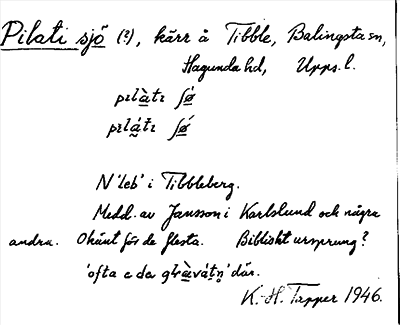 Pilati sjö (?), kärr å Tibble, Balingsta sn,
Hagunda hd, Upps. l.
pɪlàtɪ ʃø̀
pɪlátɪ ʃǿ
N 'leb' i Tibbleberg.
Medd. av Jansson i Karlslund och några
andra. Okänt för de flesta. Bibliskt ursprung?
'ofta e da där.
K.-H. Tapper 1946.